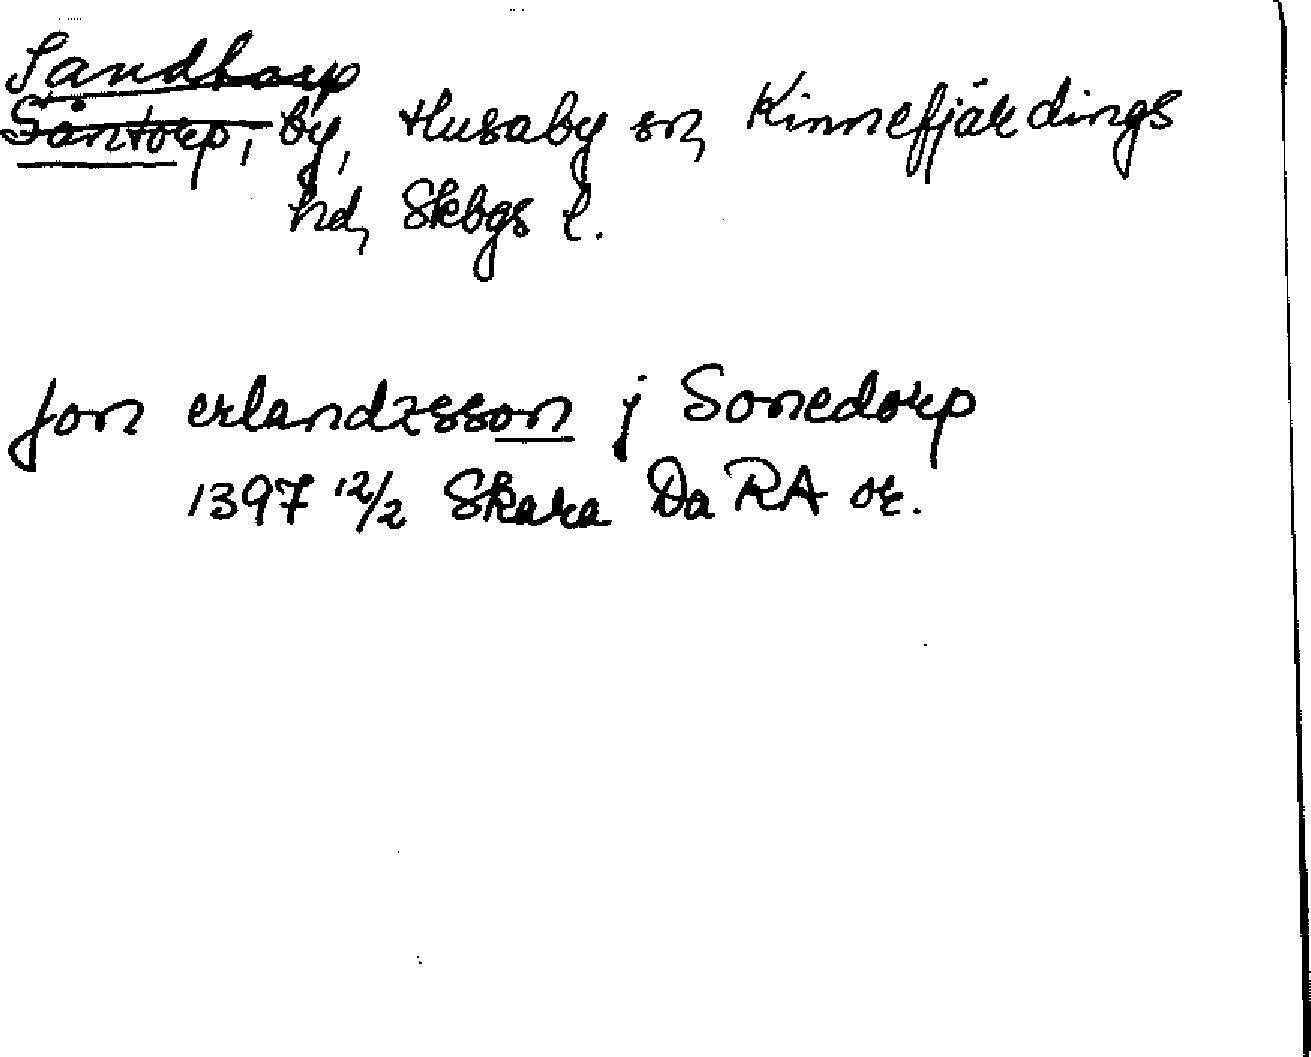 Sandtorp
Såntorp, by, Husaby sn, Kinnefjärdings
hd, Skbgs l.
jon erlandzsson j Sonedorp
1397 12/2 Skara Da RA or.